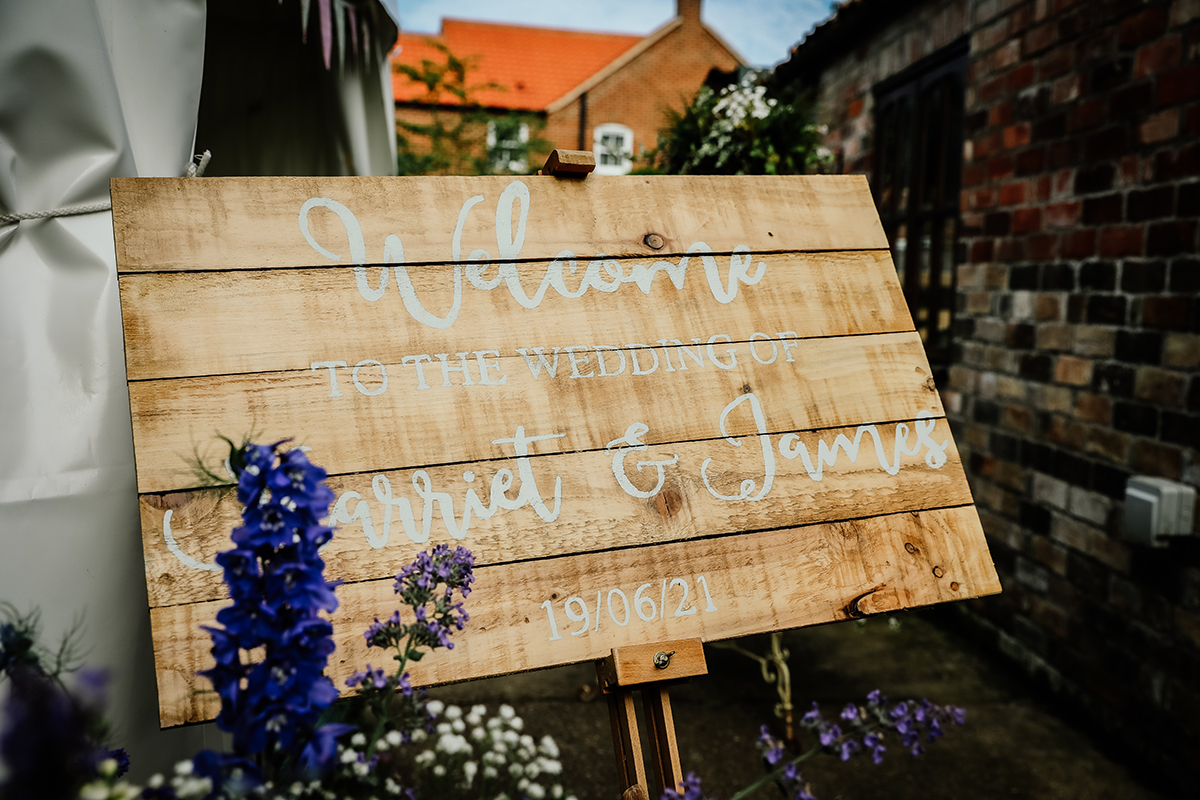 Welcome
TO THE WEDDING OF
Harriet & James
19/06/21